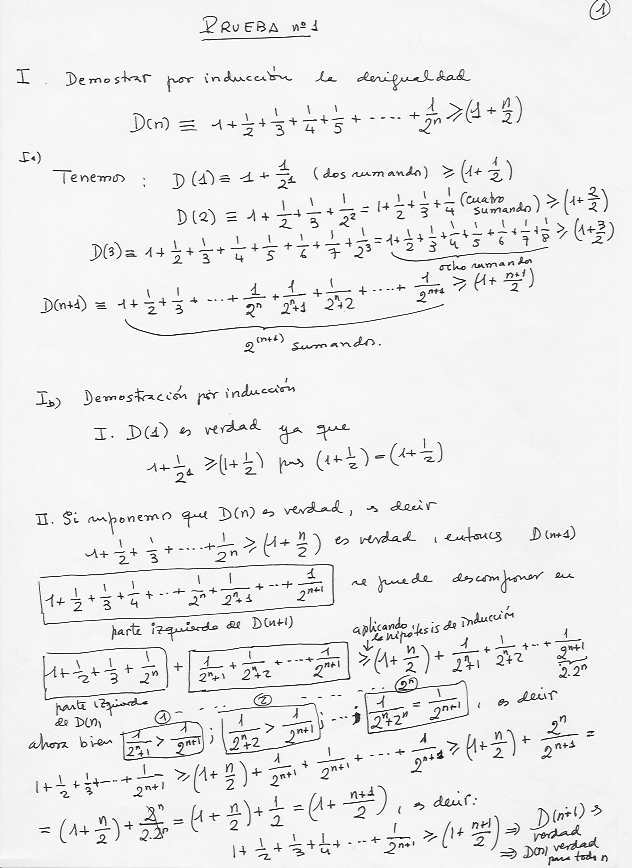 ①
PRUEBA nº 1
I. Demostrar por inducción la desigualdad
D(n) ≡ 1 + 1/2 + 1/3 + 1/4 + 1/5 + ---- + 1/2^n ≥ (1 + n/2)
Ia)
Tenemos : D(1) ≡ 1 + 1/2^1 (dos sumando) ≥ (1 + 1/2)
D(2) ≡ 1 + 1/2 + 1/3 + 1/2^2 = 1 + 1/2 + 1/3 + 1/4 (cuatro sumandos) ≥ (1 + 2/2)
D(3) ≡ 1 + 1/2 + 1/3 + 1/4 + 1/5 + 1/6 + 1/7 + 1/2^3 = 1 + 1/2 + 1/3 + 1/4 + 1/5 + 1/6 + 1/7 + 1/8 ≥ (1 + 3/2)
ocho sumandos
D(n+1) ≡ 1 + 1/2 + 1/3 + ... + 1/2^n + 1/(2^n+1) + 1/(2^n+2) + ... + 1/2^(n+1) ≥ (1 + (n+1)/2)
2^(n+1) sumandos.
Ib) Demostración por inducción
I. D(1) es verdad ya que
1 + 1/2^1 ≥ (1 + 1/2) pues (1 + 1/2) = (1 + 1/2)
II. Si suponemos que D(n) es verdad, es decir
1 + 1/2 + 1/3 + .... + 1/2^n ≥ (1 + n/2) es verdad, entonces D(n+1)
1 + 1/2 + 1/3 + 1/4 + ... + 1/2^n + 1/(2^n+1) + ... + 1/2^(n+1) se puede descomponer en
parte izquierda de D(n+1)
aplicando la hipótesis de inducción
1 + 1/2 + 1/3 + 1/2^n + 1/(2^n+1) + 1/(2^n+2) + ... + 1/2^(n+1) ≥ (1 + n/2) + 1/(2^n+1) + 1/(2^n+2) + ... + 1/2^(n+1)
2.2^n
parte izquierda de D(n)
① - - - ② - - - - - 2^n
ahora bien 1/(2^n+1) > 1/2^(n+1) ; 1/(2^n+2) > 1/2^(n+1) ; ... ; 1/(2^n+2^n) = 1/2^(n+1) , es decir
1 + 1/2 + 1/3 + ... + 1/2^(n+1) ≥ (1 + n/2) + 1/2^(n+1) + 1/2^(n+1) + ... + 1/2^(n+1) ≥ (1 + n/2) + 2^n/2^(n+1) =
= (1 + n/2) + 2^n/2.2^n = (1 + n/2) + 1/2 = (1 + (n+1)/2) , es decir:
1 + 1/2 + 1/3 + 1/4 + ... + 1/2^(n+1) ≥ (1 + (n+1)/2) ⇒ D(n+1) es verdad
⇒ D(n) verdad para todo n